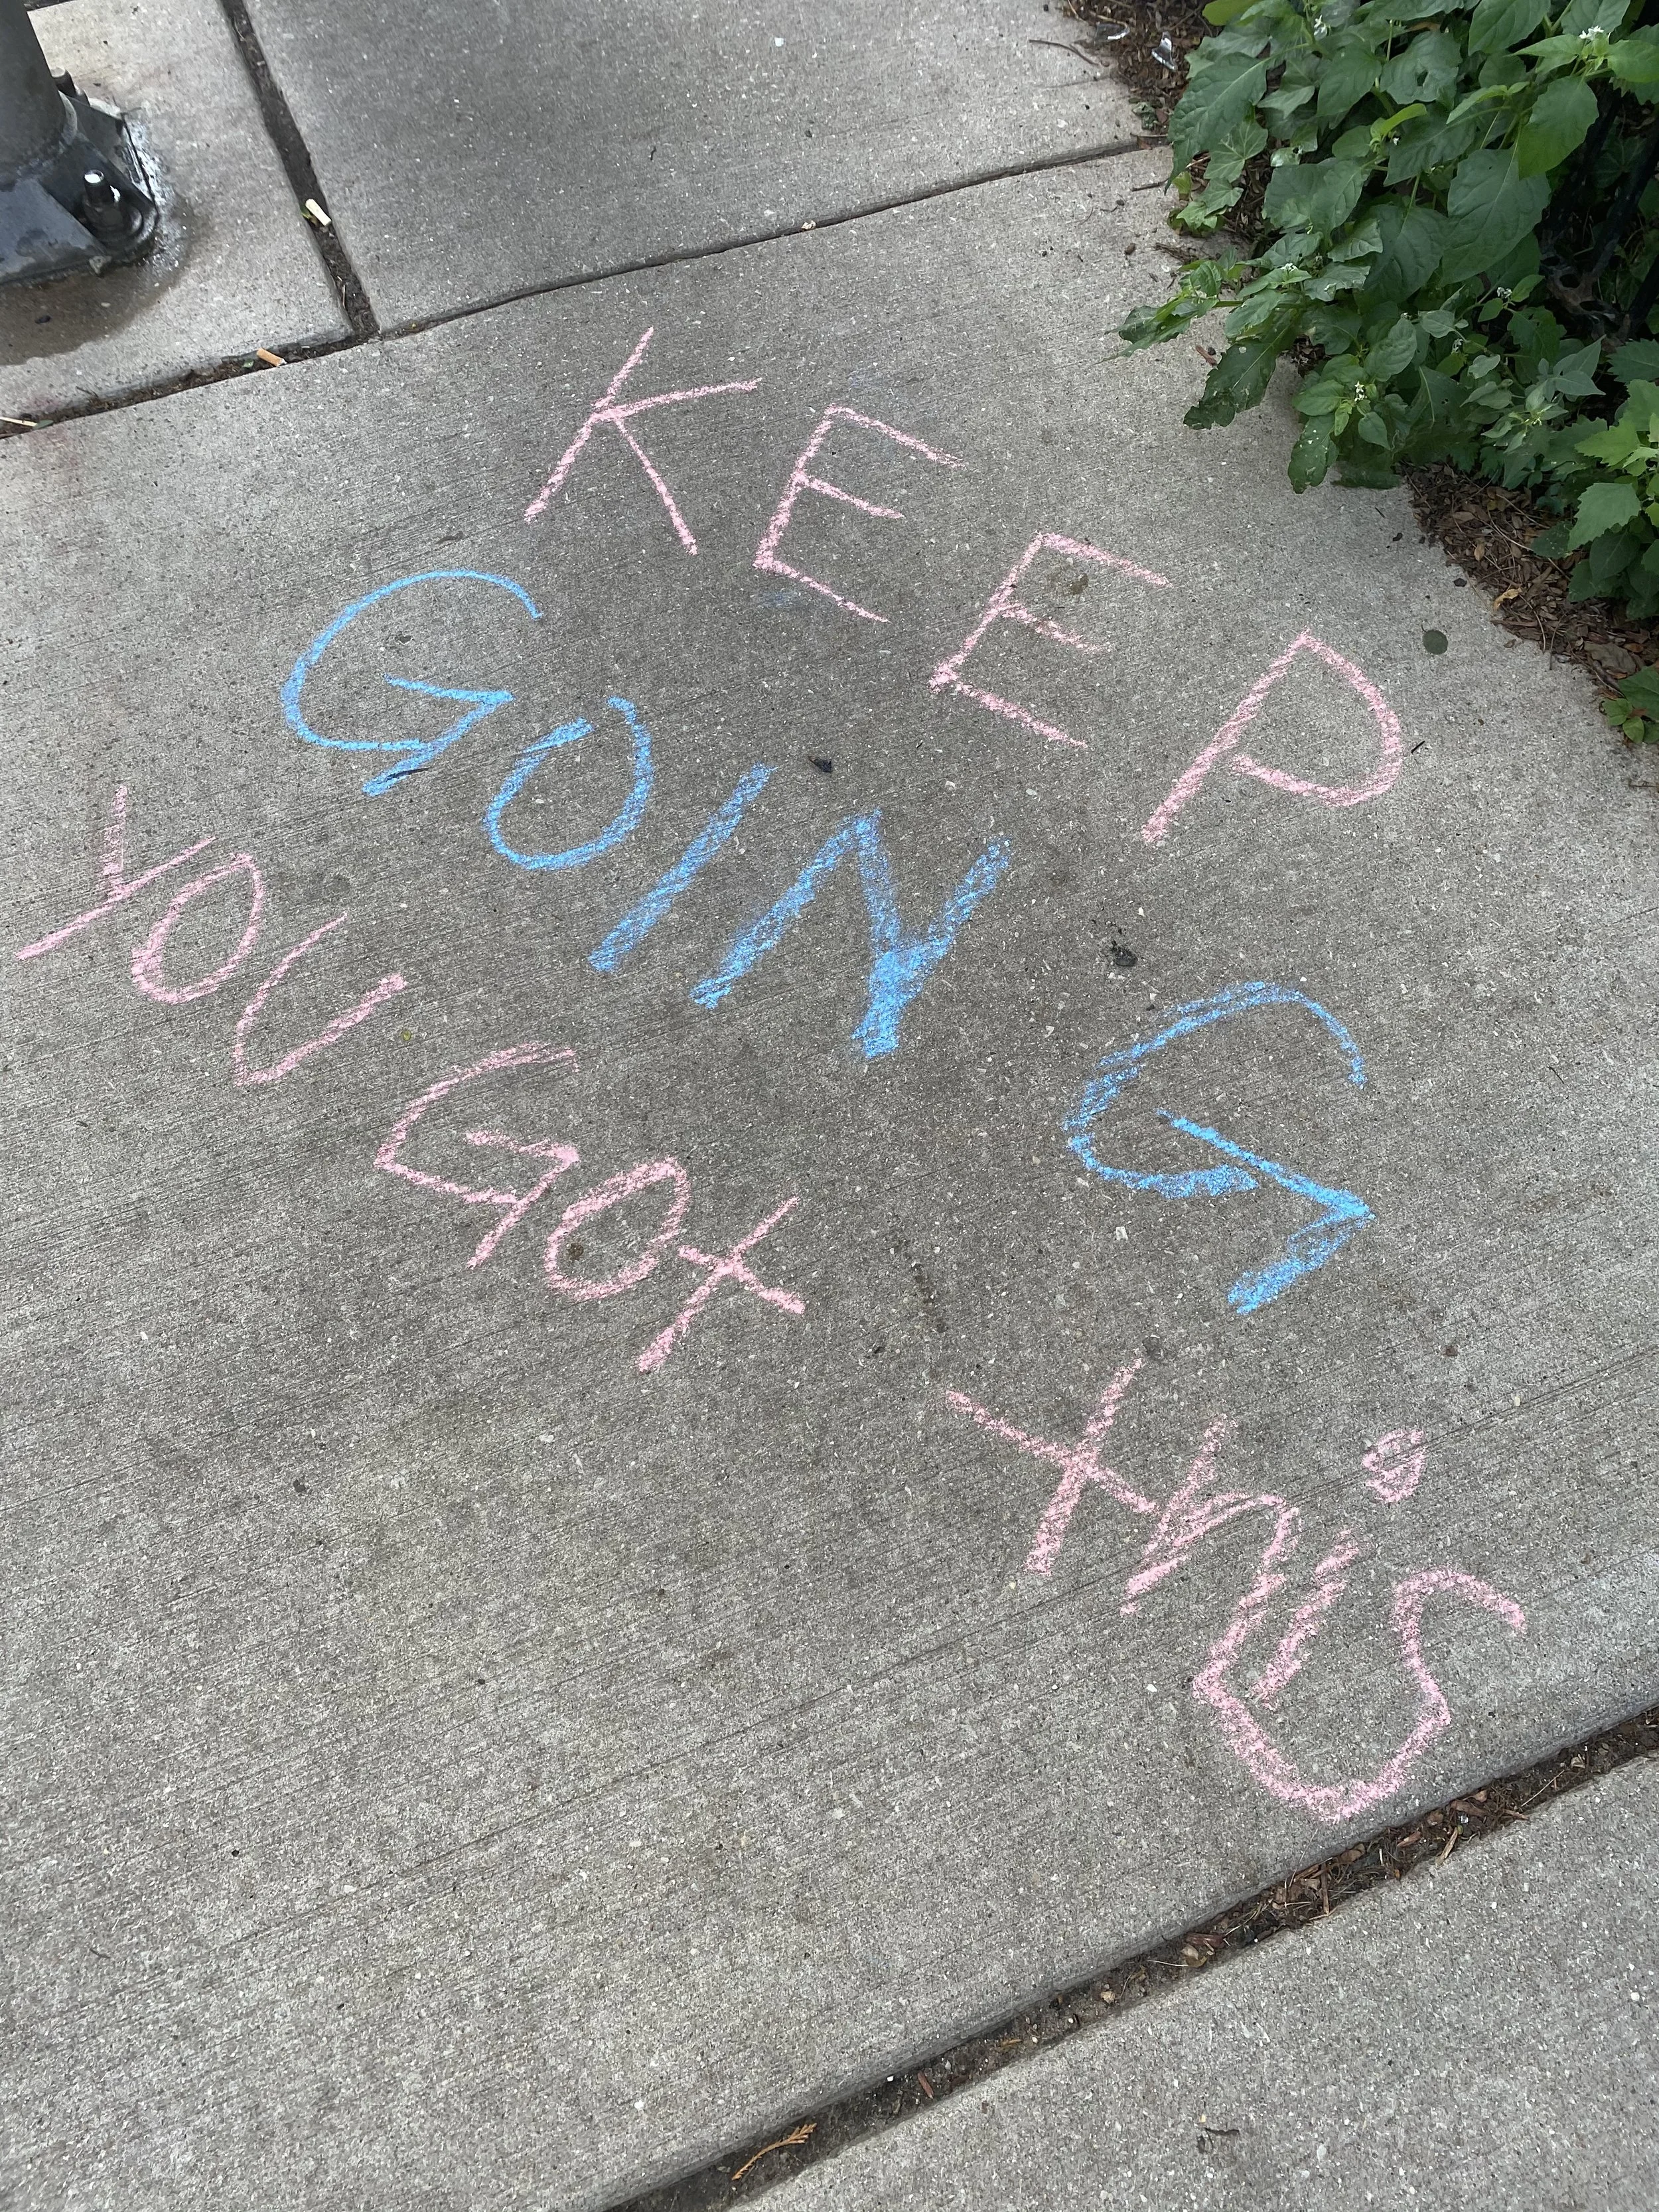 KEEP
GOING
YOU GOt this